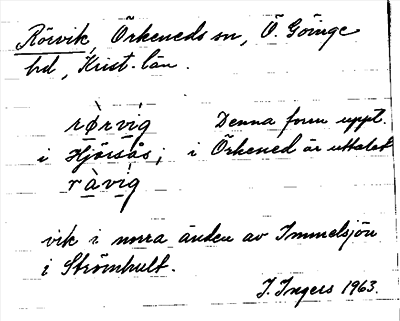 Rörvik, Örkeneds sn, Ö. Göinge
hd, Krist. län.
rørvig Denna form uppt.
i Hjörsås; i Örkened är uttalet
ràvig
vik i norra änden av Immelsjön
i Strömhult.
I. Ingers 1963.